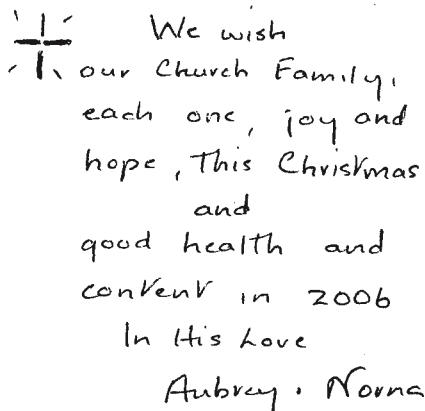 We wish
our Church Family,
each one, joy and
hope, This Christmas
and
good health and
content in 2006
In His Love
Aubrey . Norma